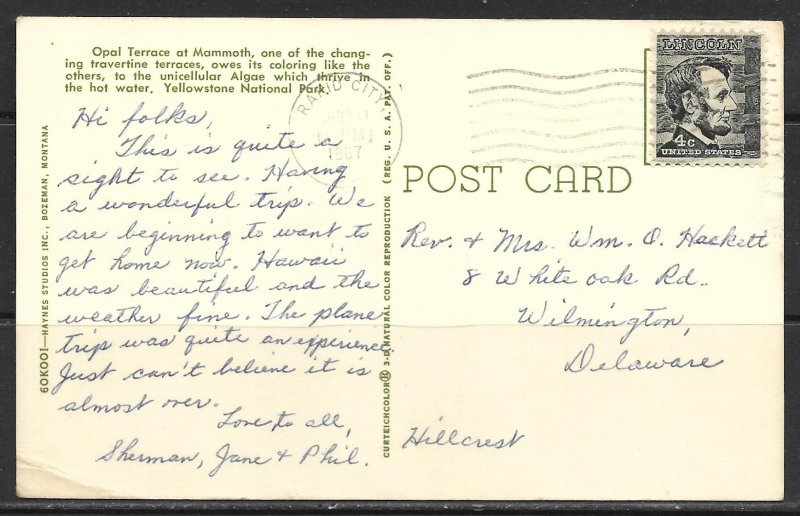 Opal Terrace at Mammoth, one of the chang-
ing travertine terraces, owes its coloring like the
others, to the unicellular Algae which thrive in
the hot water. Yellowstone National Park.
Hi folks,
This is quite a
sight to see. Having
a wonderful trip. We
are beginning to want to
get home now. Hawaii
was beautiful and the
weather fine. The plane
trip was quite an experience.
Just can't believe it is
almost over.
Love to all,
Sherman, Jane & Phil.
60K001—HAYNES STUDIOS INC., BOZEMAN, MONTANA
CURTEICHCOLOR® 3-D NATURAL COLOR REPRODUCTION (REG. U.S.A. PAT. OFF.)
RAPID CITY
PM
1967
LINCOLN
4c
UNITED STATES
POST CARD
Rev. & Mrs. Wm. O. Hackett
8 White oak Rd.
Wilmington,
Delaware
Hillcrest